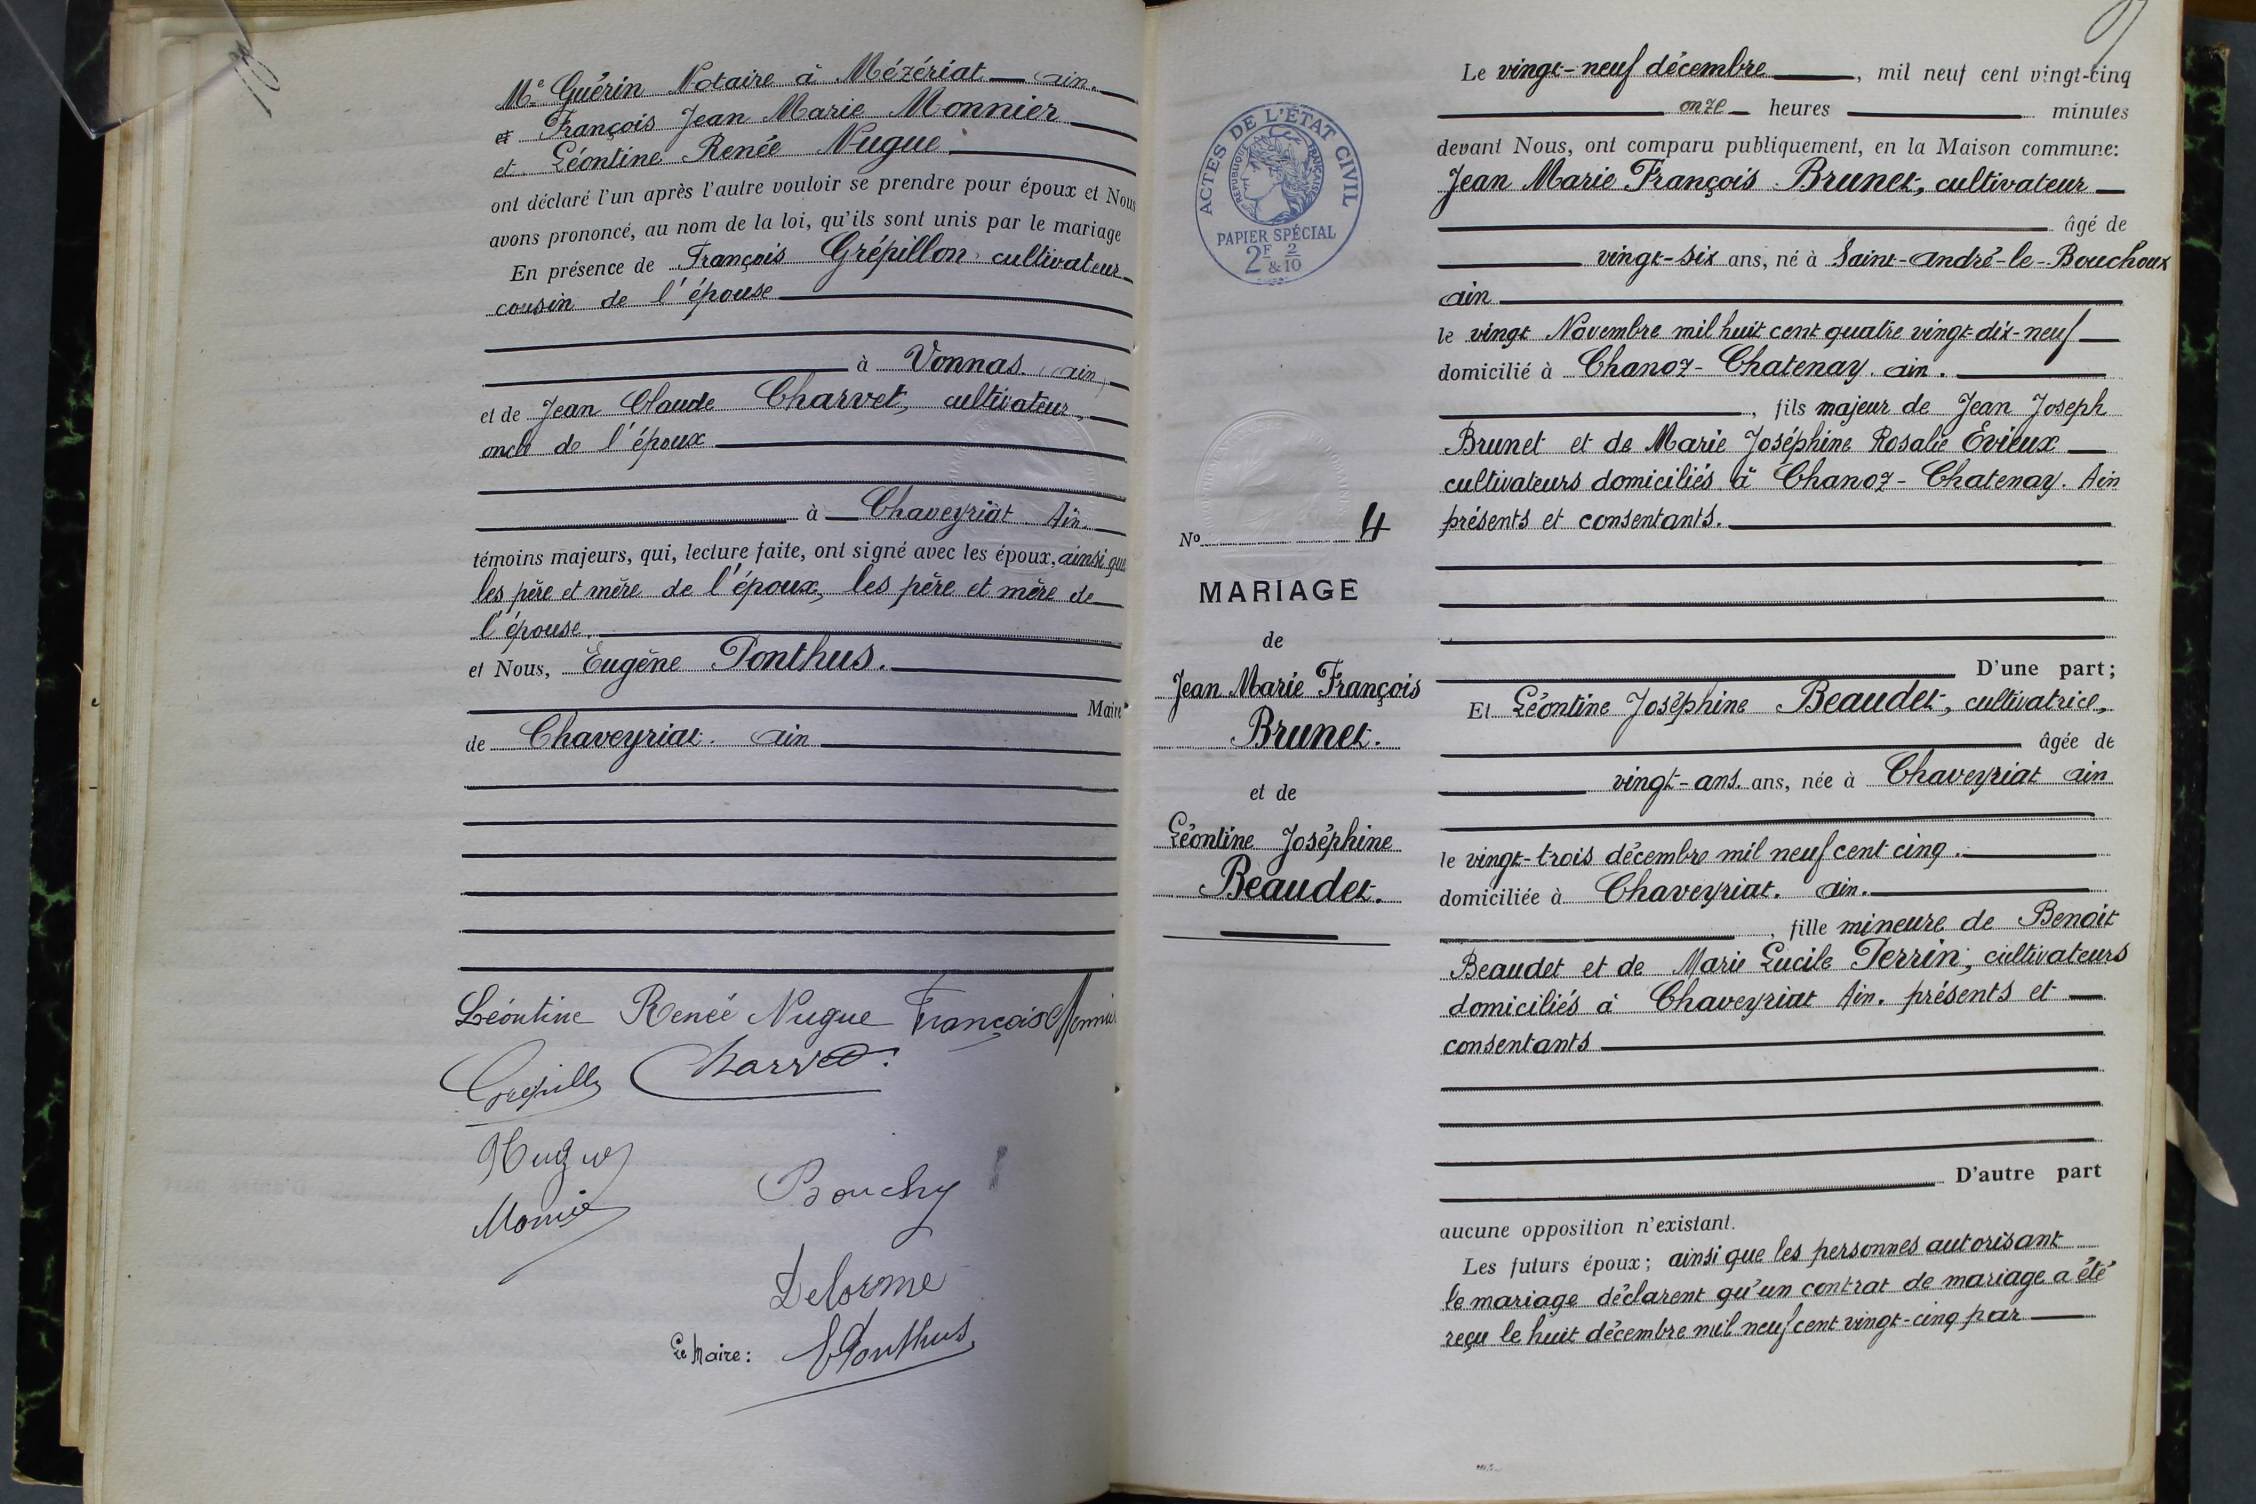 Me Guérin Notaire à Mézériat ain.
et François Jean Marie Monnier
et Léontine Renée Nugue
ont déclaré l'un après l'autre vouloir se prendre pour époux et Nous
avons prononcé, au nom de la loi, qu'ils sont unis par le mariage
En présence de François Grépillon cultivateur
cousin de l'épouse
à Vonnas. ain
et de Jean Claude Charvet, cultivateur,
oncle de l'époux
à Chaveyriat Ain.
témoins majeurs, qui, lecture faite, ont signé avec les époux, ainsi que
les père et mère de l'époux, les père et mère de
l'épouse.
et Nous, Eugène Ponthus.
Maire
de Chaveyriat. ain
Léontine Renée Nugue François Monnier
Charvet
Monnier
Bouchy
Delorme
Le Maire: EPonthus
ACTES DE L'ÉTAT CIVIL
RÉPUBLIQUE FRANÇAISE
PAPIER SPÉCIAL
2F & 2/10
No 4
MARIAGE
de
Jean Marie François
Brunet.
et de
Léontine Joséphine
Beaudet.
Le vingt-neuf décembre, mil neuf cent vingt-cinq
onze heures minutes
devant Nous, ont comparu publiquement, en la Maison commune:
Jean Marie François Brunet, cultivateur
âgé de
vingt-six ans, né à Saint-andré-le-Bouchoux
ain
le vingt Novembre mil huit cent quatre vingt-dix-neuf
domicilié à Chanoz-Chatenay. ain.
, fils majeur de Jean Joseph
Brunet et de Marie Joséphine Rosalie Evieux
cultivateurs domiciliés à Chanoz-Chatenay. Ain
présents et consentants.
D'une part;
Et Léontine Joséphine Beaudet, cultivatrice,
âgée de
vingt-ans. ans, née à Chaveyriat ain
le vingt-trois décembre mil neuf cent cinq.
domiciliée à Chaveyriat. ain.
, fille mineure de Benoit
Beaudet et de Marie Lucile Perrin, cultivateurs
domiciliés à Chaveyriat Ain. présents et
consentants
D'autre part
aucune opposition n'existant.
Les futurs époux; ainsi que les personnes autorisant
le mariage déclarent qu'un contrat de mariage a été
reçu le huit décembre mil neuf cent vingt-cinq par